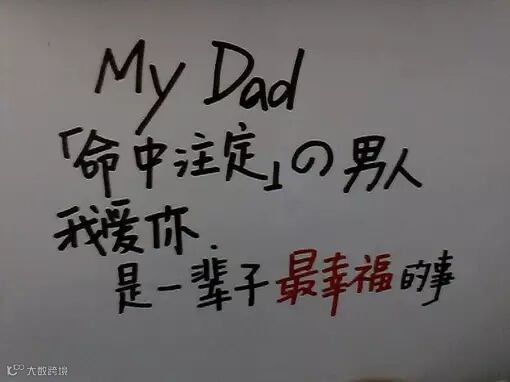 My Dad
「命中注定」の男人
我爱你.
是一辈子最幸福的事
大数跨境